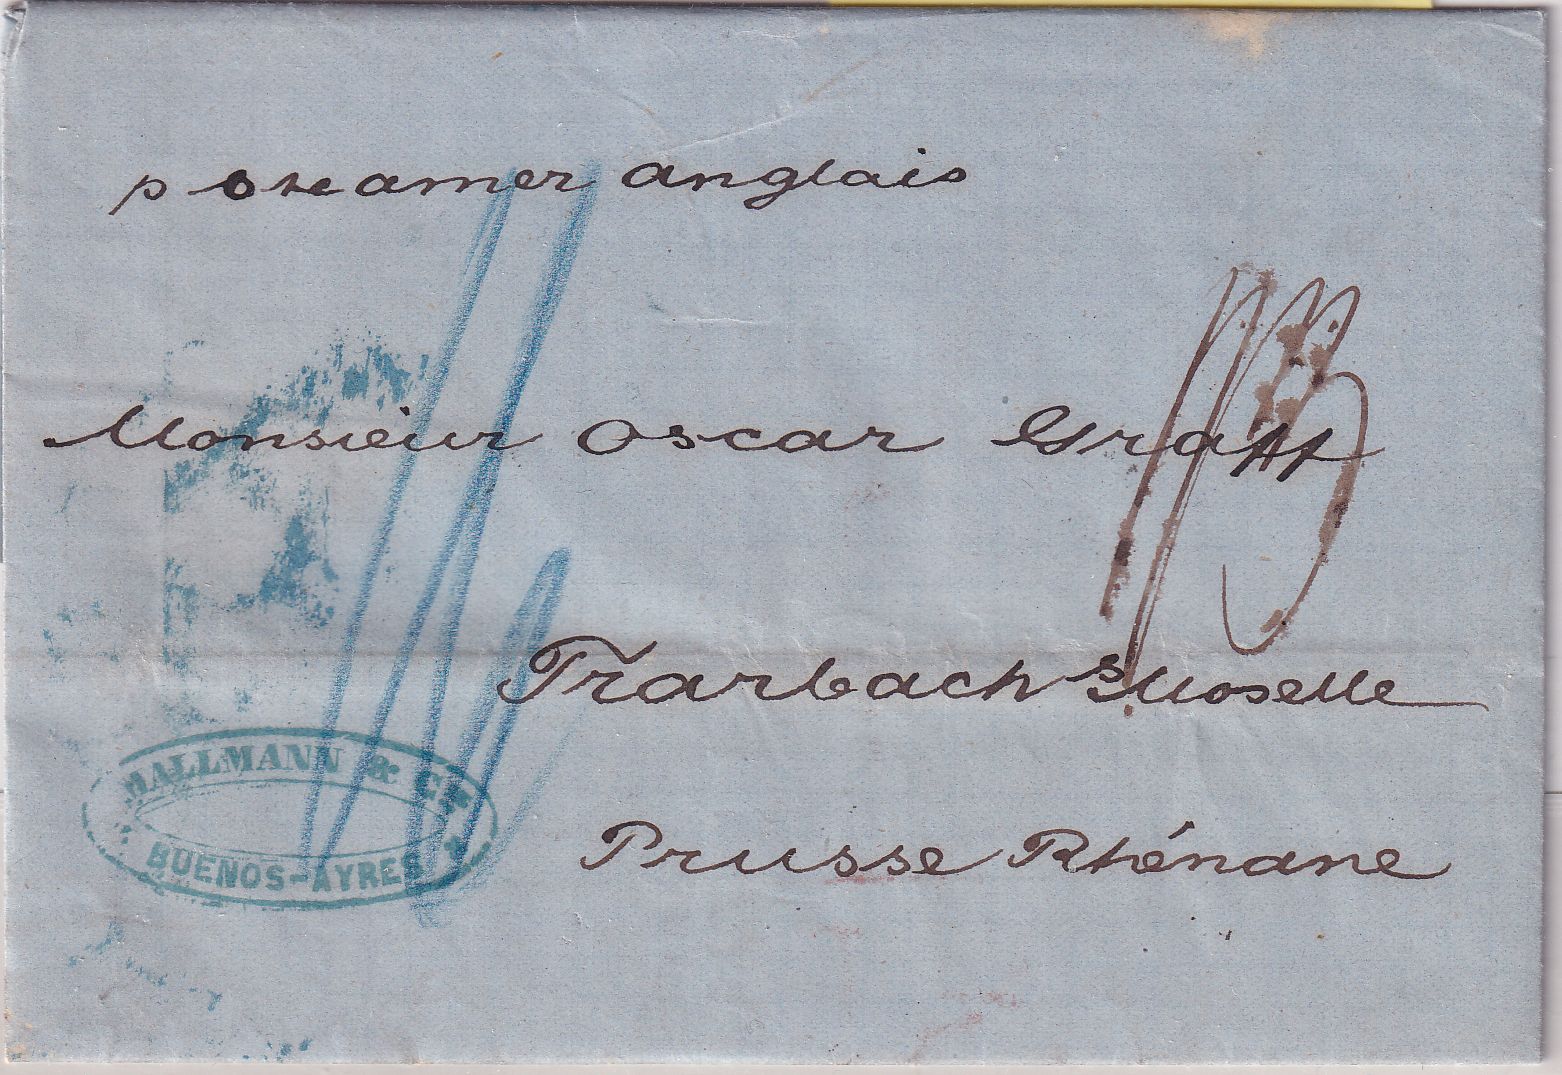 p steamer anglais
Monsieur Oscar Graff
Trarbach s/Moselle
Prusse Rhénane
MALLMANN & Cᴵᴱ
BUENOS-AYRES